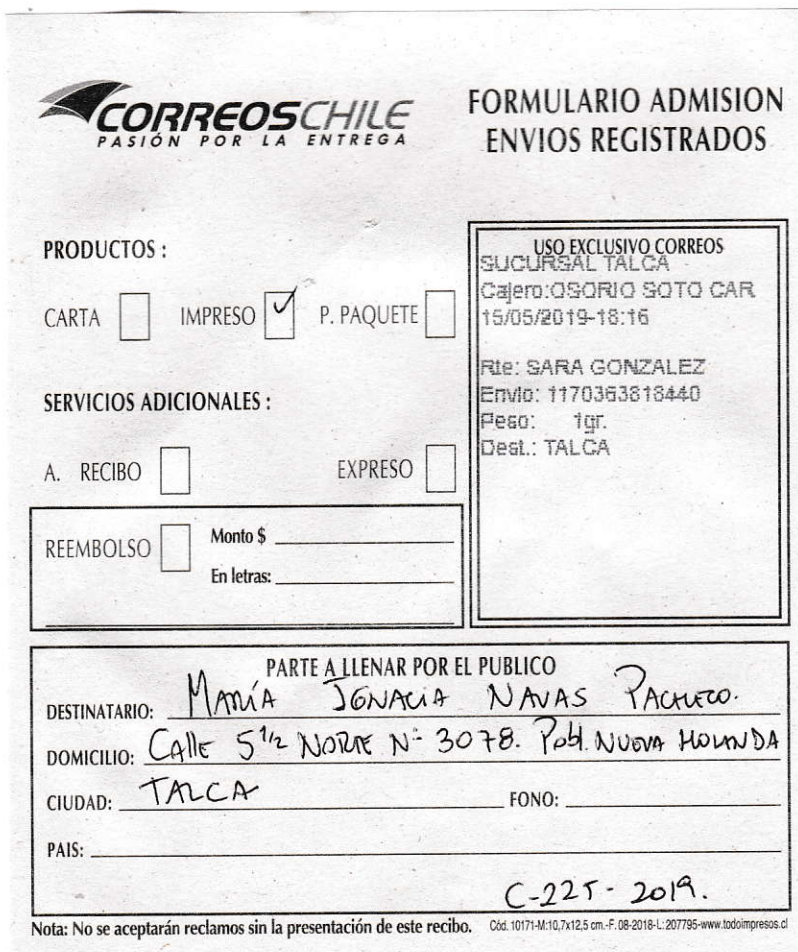 CORREOSCHILE
PASIÓN POR LA ENTREGA
FORMULARIO ADMISION
ENVIOS REGISTRADOS
PRODUCTOS :
CARTA
IMPRESO ✓
P. PAQUETE
SERVICIOS ADICIONALES :
A. RECIBO
EXPRESO
REEMBOLSO
Monto $
En letras:
USO EXCLUSIVO CORREOS
SUCURSAL TALCA
Cajero:OSORIO SOTO CAR
15/05/2019-18:16
Rte: SARA GONZALEZ
Envio: 1170363818440
Peso: 1gr.
Dest.: TALCA
PARTE A LLENAR POR EL PUBLICO
DESTINATARIO: MARÍA IGNACIA NAVAS PACHECO.
DOMICILIO: CALLE 5 1/2 NORTE Nº 3078. Pobl. NUEVA HOLANDA
CIUDAD: TALCA FONO:
PAIS:
C-225-2019.
Nota: No se aceptarán reclamos sin la presentación de este recibo. Cód. 10171-M:10,7x12,5 cm.-F. 08-2018-L: 207795-www.todoimpresos.cl